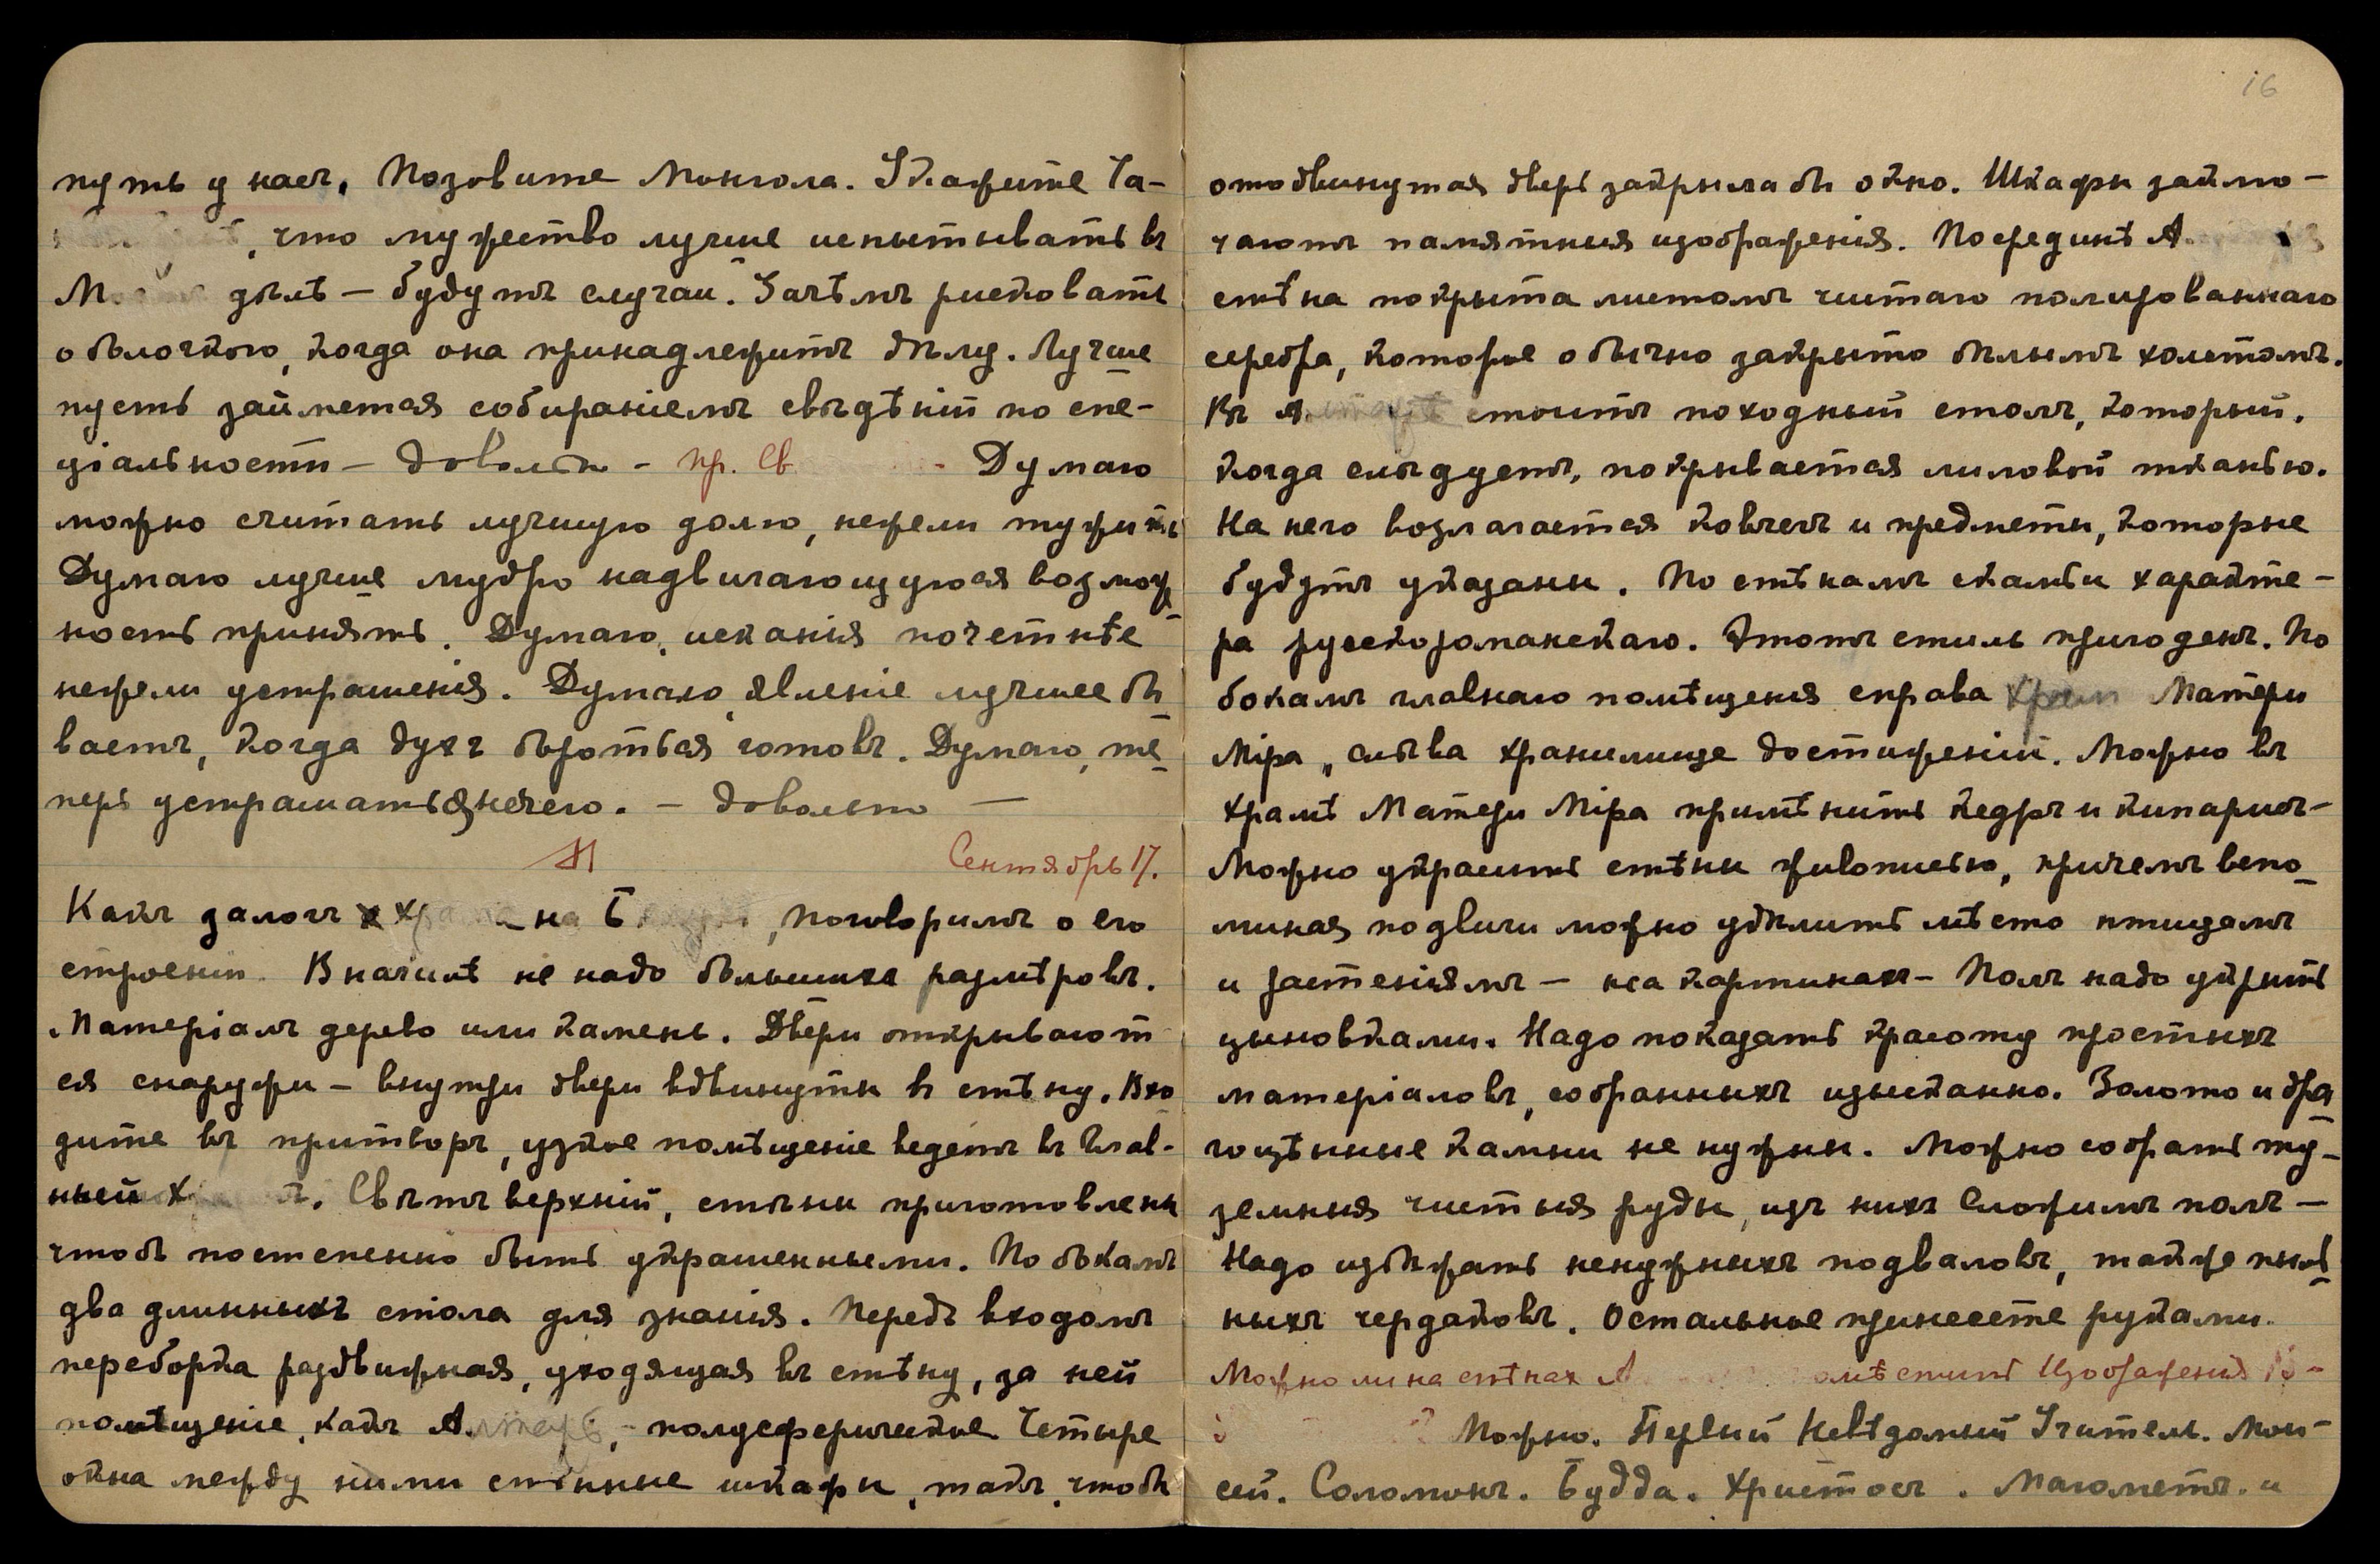 путь у насъ. Позовите Монгола. Укажите Та-
, что мужество лучше испытывать въ
М дѣлѣ — будутъ случаи. Зачѣмъ рисковать
оболочкою, когда она принадлежитъ дѣлу. Лучше
пусть займется собираніемъ свѣдѣній по спе-
ціальности — довольно - пр. Св. - Думаю
можно считать лучшую долю, нежели тужить
Думаю лучше мудро надвигающуюся возмож-
ность принять. Думаю, исканія почетнѣе
нежели устрашенія. Думаю, явленіе лучшее бы-
ваетъ, когда духъ бороться готовъ. Думаю, те-
перь устрашаться нечего. — довольно —
Сентябрь 17.
Какъ залогъ на Б , поговоримъ о его
строеніи. Вначалѣ не надо большихъ размѣровъ.
Матеріалъ дерево или камень. Двери открывают
ся снаружи — внутри двери вдвинуты въ стѣну. Вхо
дите въ притворъ, узкое помѣщеніе ведетъ въ Глав-
ный Х . Свѣтъ верхній, стѣны приготовлены
чтобъ постепенно быть украшенными. По бокамъ
два длинныхъ стола для знанія. Передъ входомъ
переборка раздвижная, уходящая въ стѣну, за ней
помѣщеніе, какъ Алтарь, - полусферическое Четыре
окна между ними стѣнные шкафы, такъ, чтобы
16
отодвинутая дверь закрыла бы окно. Шкафы заклю-
чаютъ памятныя изображенія. Посрединѣ А.
стѣна покрыта листомъ чистаго полированнаго
серебра, которое обычно закрыто бѣлымъ холстомъ.
Въ А. стоитъ походный столъ, который,
когда слѣдуетъ, покрывается лиловой тканью.
На него возлагается ковчегъ и предметы, которые
будутъ указаны. По стѣнамъ скамьи характе-
ра русскороманскаго. Этотъ стиль пригоденъ. По
бокамъ главнаго помѣщенія справа Храм Матери
Міра, слѣва хранилище достиженій. Можно въ
храмѣ Матери Міра примѣнить кедръ и кипарисъ-
Можно украсить стѣны живописью, причемъ вспо-
миная подвиги можно удѣлить мѣсто птицамъ
и растеніямъ — на картинахъ - Полъ надо укрыть
цыновками. Надо показать красоту простыхъ
матеріаловъ, собранныхъ изысканно. Золото и дра-
гоцѣнные камни не нужны. Можно собрать ту-
земныя чистыя руды, изъ нихъ сложимъ полъ —
Надо избѣжать ненужныхъ подваловъ, также пыль-
ныхъ чердаковъ. Остальное принесете руками.
Можно ли на стѣнах А омѣстить Изображенія
? Можно. Первый Невѣдомый Учитель. Мои-
сей. Соломонъ. Будда. Христосъ. Магометъ. и